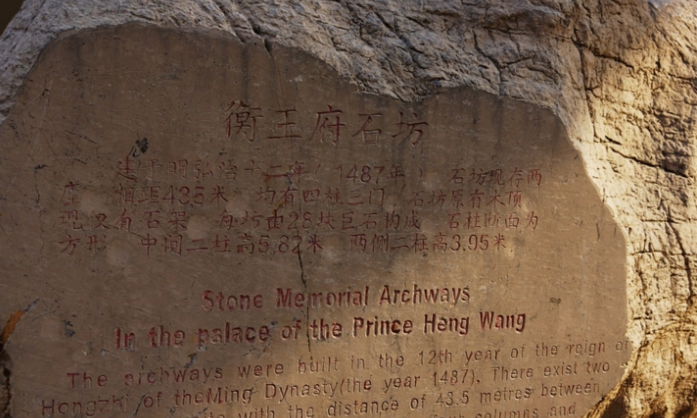 衡王府石坊
建于明弘治十二年（1487年） 石坊现存两
座 相距43.5米 均有四柱三门 石坊原有木顶
现仅有石架 每坊由28块巨石构成 石柱断面为
方形 中间二柱高5.82米 两侧二柱高3.95米
Stone Memorial Archways
In the palace of the Prince Heng Wang
The archways were built in the 12th year of the reign of
Hongzhi of theMing Dynasty(the year 1487). There exist two
with the distance of 43.5 metres between
columns and